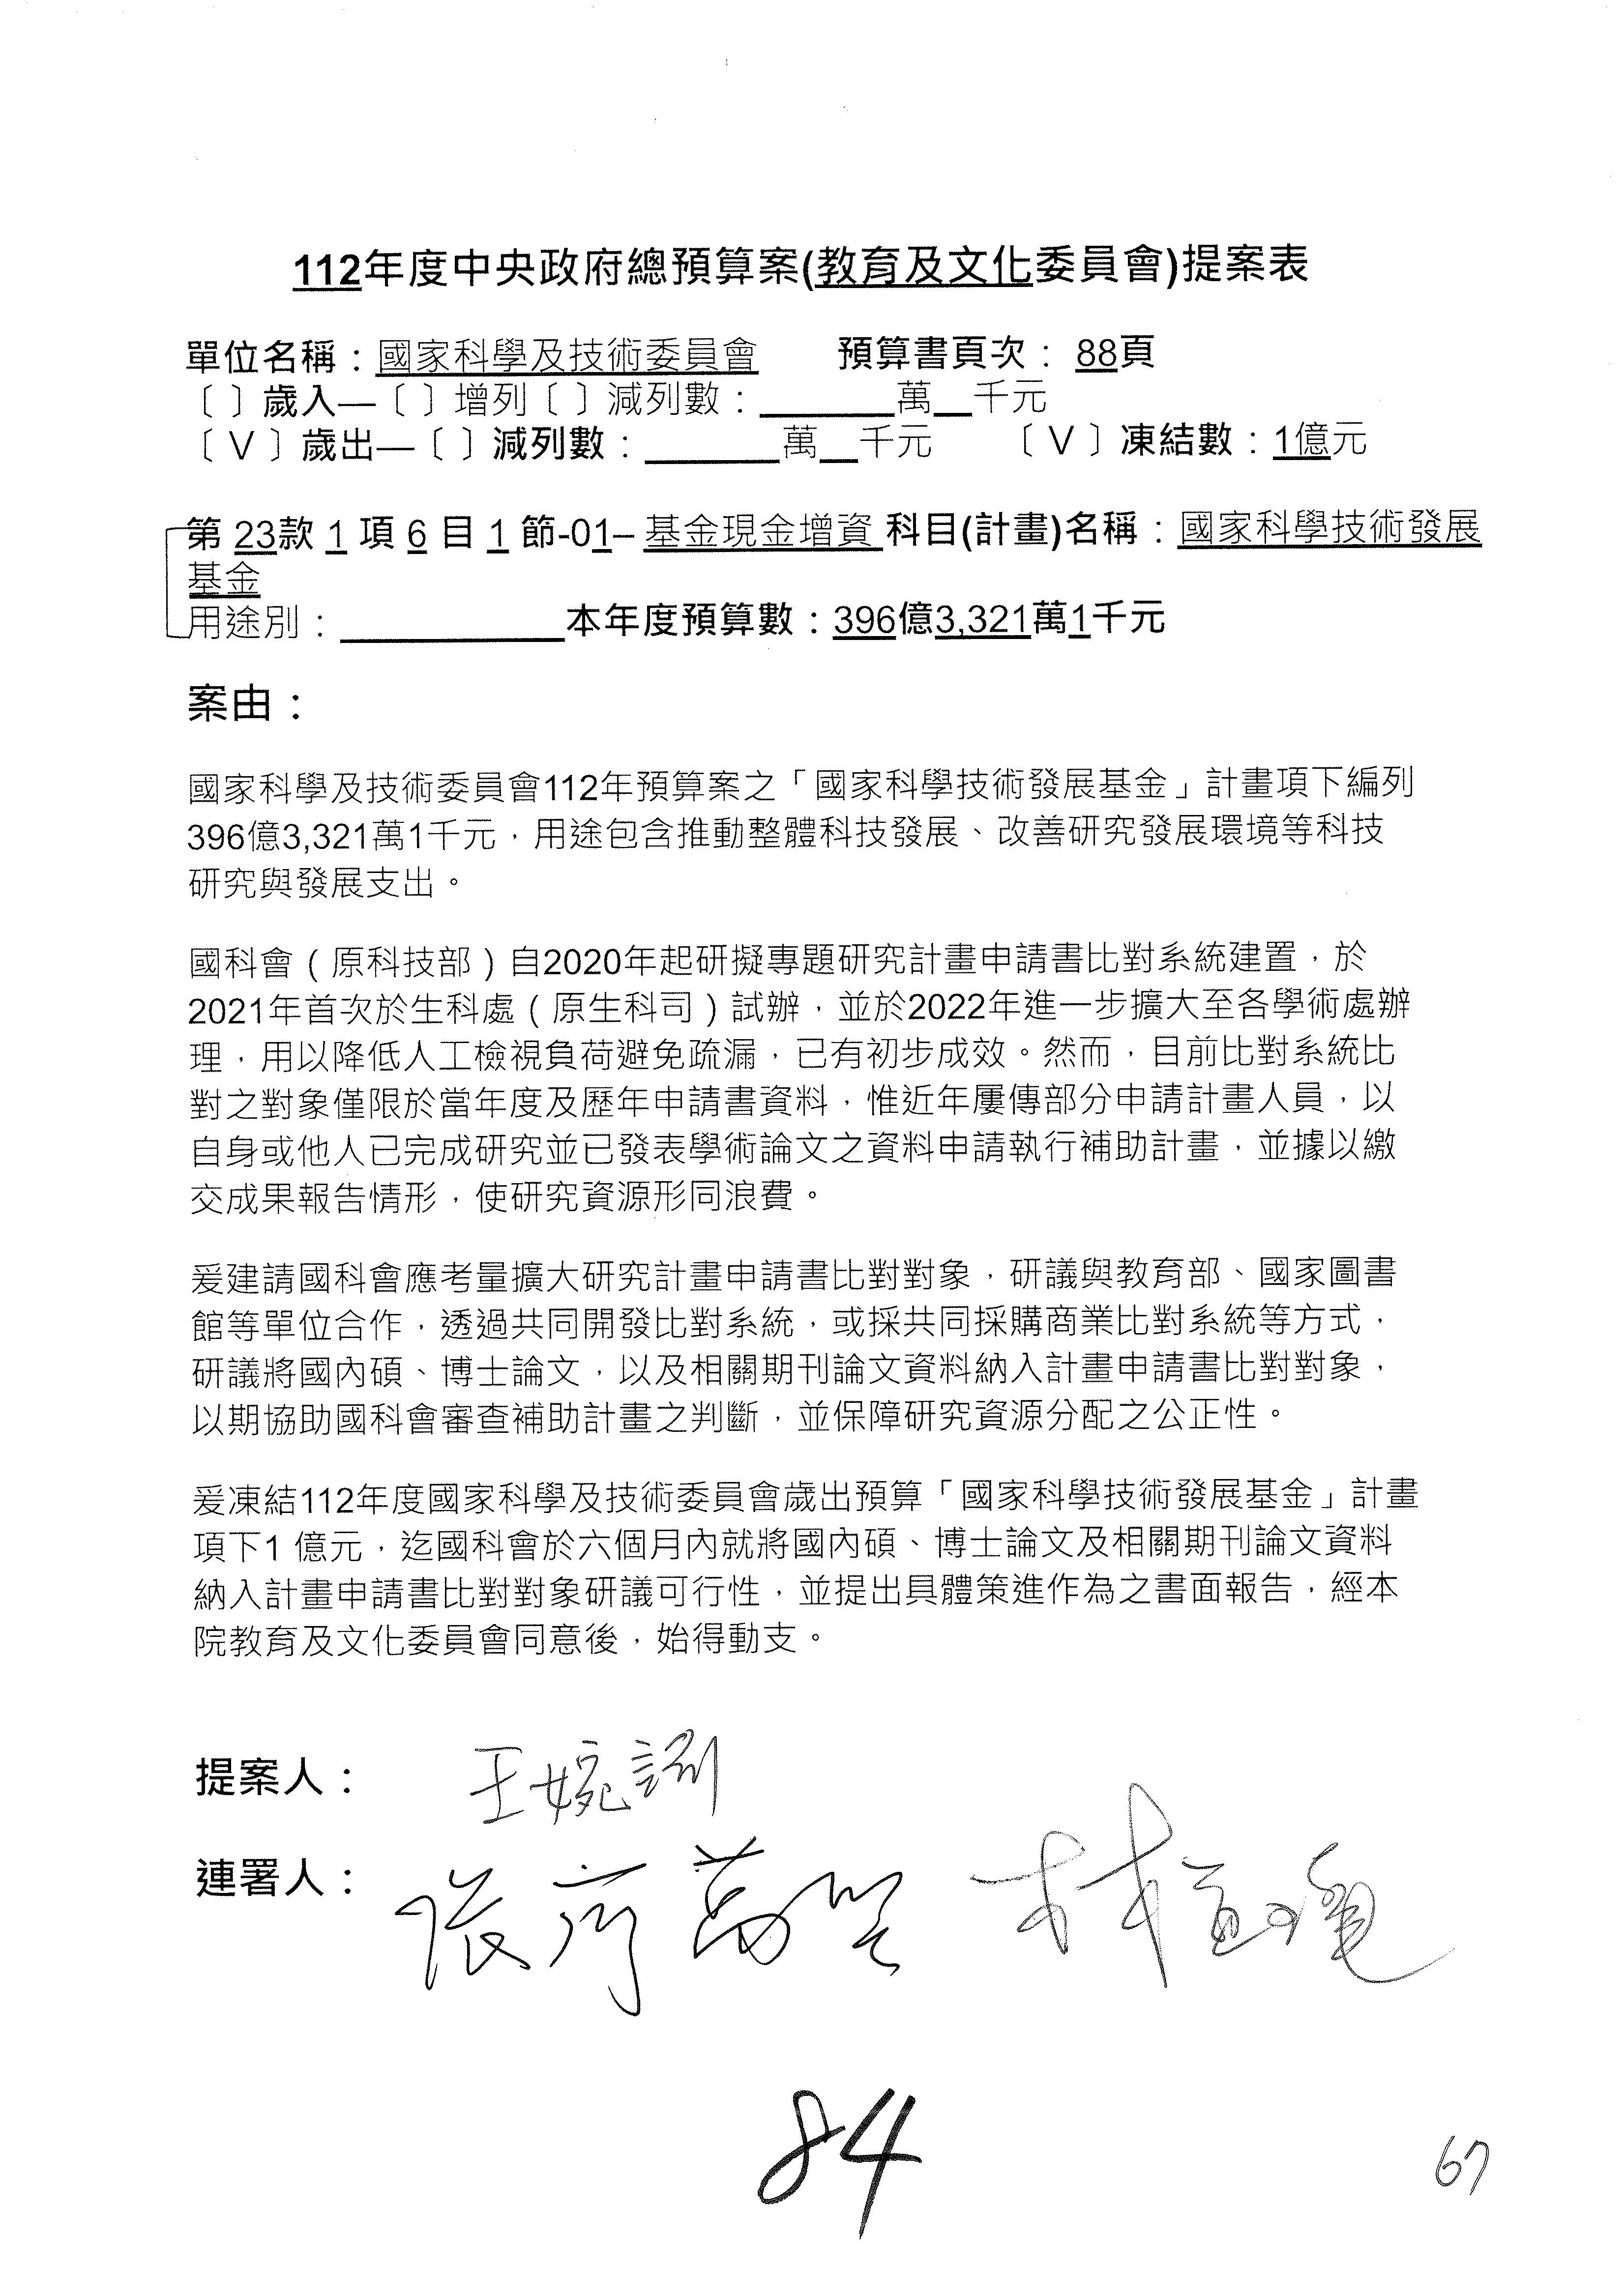 112年度中央政府總預算案(教育及文化委員會)提案表
單位名稱：國家科學及技術委員會 預算書頁次：88頁
〔 〕歲入—〔 〕增列〔 〕減列數：______萬__千元
〔 V 〕歲出—〔 〕減列數：______萬__千元 〔 V 〕凍結數：1億元
第 23款 1 項 6 目 1 節-01– 基金現金增資 科目(計畫)名稱：國家科學技術發展
基金
用途別：__________本年度預算數：396億3,321萬1千元
案由：
國家科學及技術委員會112年預算案之「國家科學技術發展基金」計畫項下編列
396億3,321萬1千元，用途包含推動整體科技發展、改善研究發展環境等科技
研究與發展支出。
國科會（原科技部）自2020年起研擬專題研究計畫申請書比對系統建置，於
2021年首次於生科處（原生科司）試辦，並於2022年進一步擴大至各學術處辦
理，用以降低人工檢視負荷避免疏漏，已有初步成效。然而，目前比對系統比
對之對象僅限於當年度及歷年申請書資料，惟近年屢傳部分申請計畫人員，以
自身或他人已完成研究並已發表學術論文之資料申請執行補助計畫，並據以繳
交成果報告情形，使研究資源形同浪費。
爰建請國科會應考量擴大研究計畫申請書比對對象，研議與教育部、國家圖書
館等單位合作，透過共同開發比對系統，或採共同採購商業比對系統等方式，
研議將國內碩、博士論文，以及相關期刊論文資料納入計畫申請書比對對象，
以期協助國科會審查補助計畫之判斷，並保障研究資源分配之公正性。
爰凍結112年度國家科學及技術委員會歲出預算「國家科學技術發展基金」計畫
項下1 億元，迄國科會於六個月內就將國內碩、博士論文及相關期刊論文資料
納入計畫申請書比對對象研議可行性，並提出具體策進作為之書面報告，經本
院教育及文化委員會同意後，始得動支。
提案人： 王婉諭
連署人： 張廖萬堅 林宜瑾
84
67